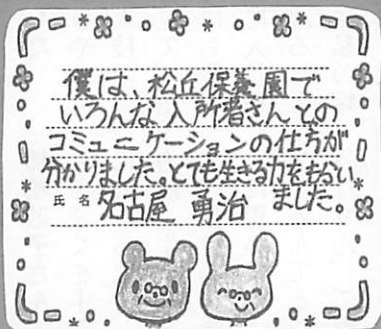 僕は、松丘保養園で
いろんな入所者さんとの
コミュニケーションの仕方が
分かりました。とても生きる力をもらい
ました。
氏名 名古屋 勇治